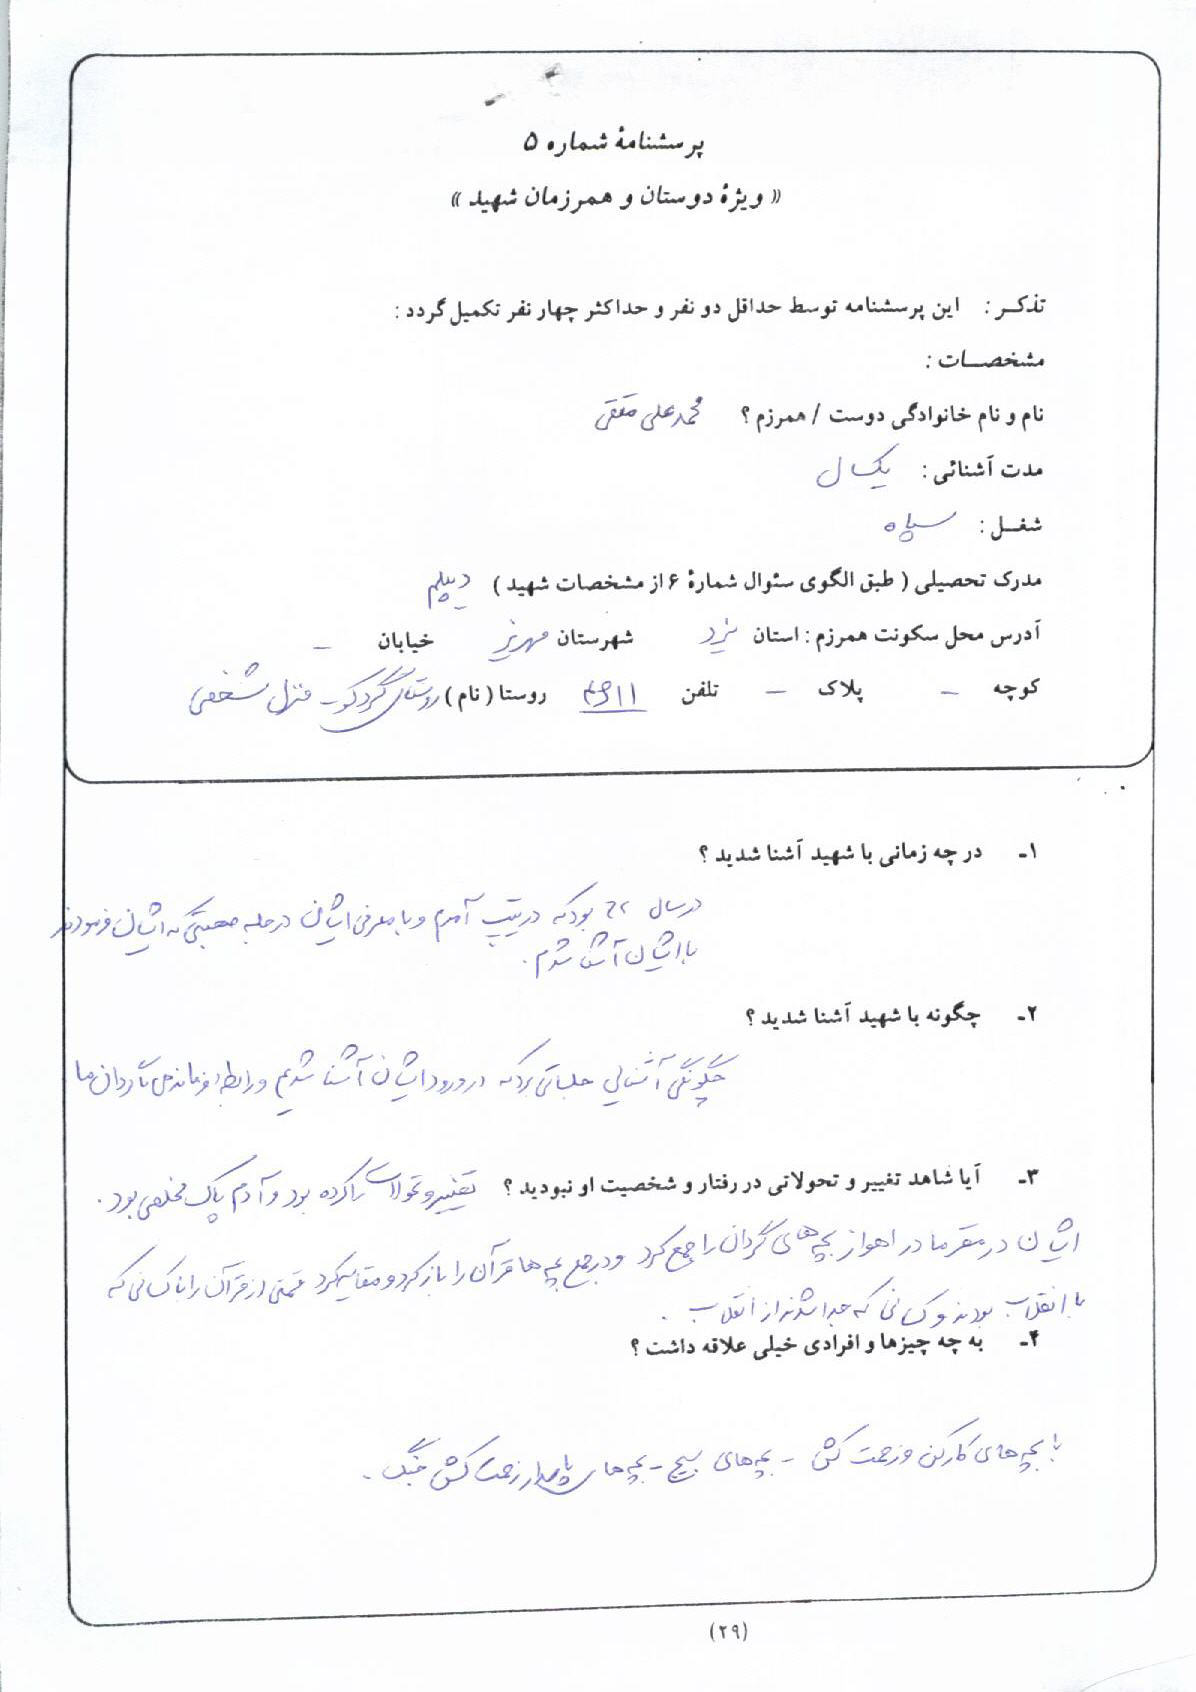 پرسشنامهٔ شماره ۵
« ویژهٔ دوستان و همرزمان شهید »
تذکر : این پرسشنامه توسط حداقل دو نفر و حداکثر چهار نفر تکمیل گردد :
مشخصات :
نام و نام خانوادگی دوست / همرزم ؟ محمدعلی متقی
مدت آشنائی : یکسال
شغل : سپاه
مدرک تحصیلی ( طبق الگوی سئوال شمارهٔ ۶ از مشخصات شهید ) دیپلم
آدرس محل سکونت همرزم : استان یزد شهرستان مهریز خیابان –
کوچه – پلاک – تلفن روستا ( نام ) روستای گردکو – منزل شخصی
۱ـ در چه زمانی با شهید آشنا شدید ؟
درسال ۶۲ بود که در تیپ آمدم و با معرفی ایشان در جلسه صحبتی که ایشان فرمودند
با ایشان آشنا شدم .
۲ـ چگونه با شهید آشنا شدید ؟
چگونگی آشنایی جلساتی بود که در ورود ایشان آشنا شدیم و رابطه فرماندهی گردان ما
۳ـ آیا شاهد تغییر و تحولاتی در رفتار و شخصیت او نبودید ؟ تغییر و تحولات را کرده بود و آدم پاک مخلصی بود .
ایشان در مقر ما در اهواز بچه‌های گردان را جمع کرد و در جمع بچه‌ها قرآن را باز کرد و مقایسه کرد قسمتی از قرآن را با کسانی که
با انقلاب بودند و کسانی که جدا شدند از انقلاب .
۴ـ به چه چیزها و افرادی خیلی علاقه داشت ؟
با بچه‌های کارکن و زحمت کش – بچه‌های بسیج – بچه‌های پاسدار زحمت کش جنگ .
(۲۹)